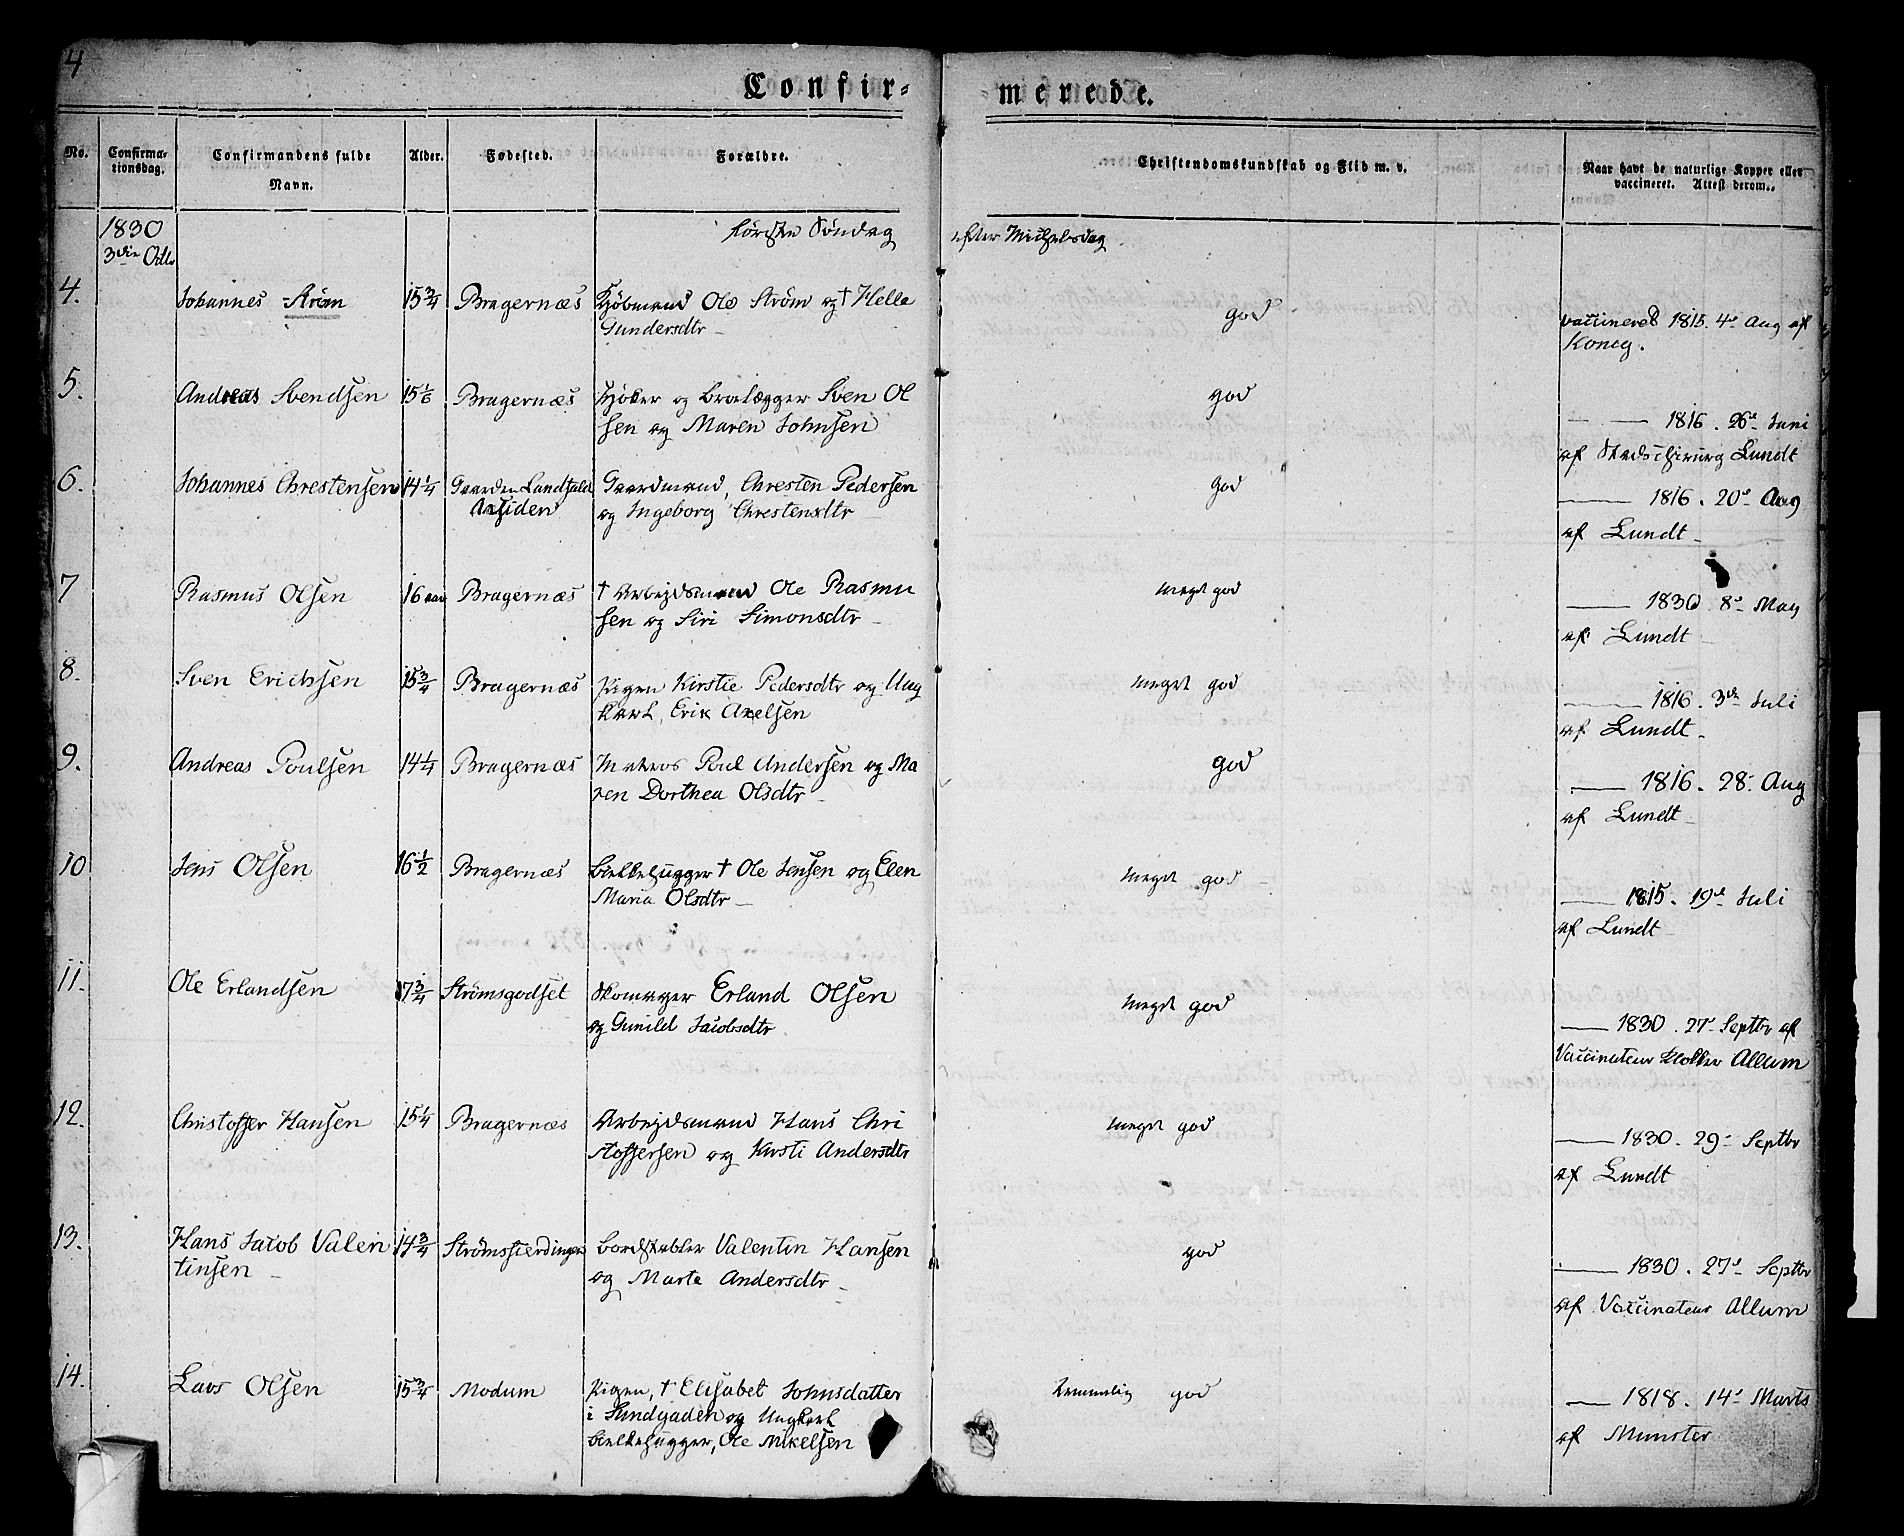 4
Confir-
merede.
No.
Confirma-
tionsdag.
Confirmandens fulde
Navn.
Alder.
Fødested.
Forældre.
Christendomskundskab og Flid m. v.
Naar havt de naturlige Kopper eller
vaccineret. Attest derom.
1830
3die Octbr
første Søndag
efter Michelsdag
4. Johannes Strøm 15 3/4 Bragernæs Kjøbmand Ole Strøm og † Helle
Gundersdtr
god
vaccineret 1815. 4de Aug af
Konig.
5. Andreas Svendsen 15 1/6 Bragernæs og Brolægger Sven Ol
sen og Maren Johnsen
god
— 1816. 26de Juni
af Stadschirurg Lundt
6. Johannes Chrestensen 14 1/4 Gaarden Landfald
Aasiden
Gaardmand, Chresten Pedersen
og Ingeborg Chrestensdtr
god
— 1816. 20de Aug
af Lundt
7 Rasmus Olsen 16 aar Bragernæs † Arbejdsmand Ole Rasmu
sen og Siri Simonsdtr
meget god
— 1830 8de May
af Lundt
8. Sven Erichsen 15 3/4 Bragernæs Pigen Kirstie Pedersdtr og Ung
karl, Erik Axelsen
meget god
— 1816. 3de Juli
af Lundt
9. Andreas Poulsen 14 1/4 Bragernæs Matros Poul Andersen og Ma
ren Dorthea Olsdtr
god
— 1816. 28. Aug
af Lundt
10 Jens Olsen 16 1/2 Bragernæs Bielkehugger † Ole Jensen og Elen
Maria Olsdtr
meget god
— 1815. 19de Juli
af Lundt
11. Ole Erlandsen 17 3/4 Strømsgodset Skomager Erland Olsen
og Gunild Jacobsdtr
meget god
— 1830. 27de Septbr af
Vaccinateur Klokker Allum
12. Christoffer Hansen 15 1/4 Bragernæs Arbejdsmand Hans Chri
stoffersen og Kirsti Andersdtr
meget god
— 1830. 29de Septbr
af Lundt
13. Hans Jacob Valen
tinsen
14 3/4 Strømsfierdingen Bordstabler Valentin Hansen
og Marte Andersdtr
god
— 1830. 27de Septbr
af Vaccinateur Allum
14. Lars Olsen 15 3/4 Modum Pigen, † Elisabet Johnsdatter
i Sundgaden og Ungkarl
Bielkehugger, Ole Mikelsen
temmelig god
— 1818. 14de Marts
af Munster